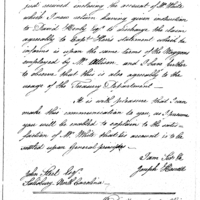 just received enclosing the account of Mr White
which I now return having given instruction
to David Henly Esqr to discharge the above
agreeably to Capt. Hair's statement which he
informs is upon the same terms of the Waggons
employed by Mr Allison, and I have further
to observe that this is also agreeably to the
usage of the Treasury Department.
It is with pleasure that I can
make this communication to you, as I
you will be enabled to explain to the satis-
faction of Mr White that his account is to be
settled upon general principles.
I am Sir &c
Joseph Howell
John Steel Esqr
Salisbury North Carolina